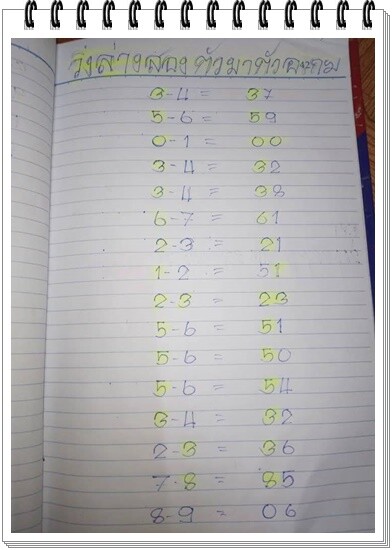 วิ่งล่างสองตัวมาตัวสองตาม
3-4 = 37
5-6 = 59
0-1 = 00
3-4 = 32
3-4 = 38
6-7 = 61
2-3 = 21
1-2 = 51
2-3 = 23
5-6 = 51
5-6 = 50
5-6 = 54
3-4 = 32
2-3 = 36
7-8 = 85
8-9 = 06